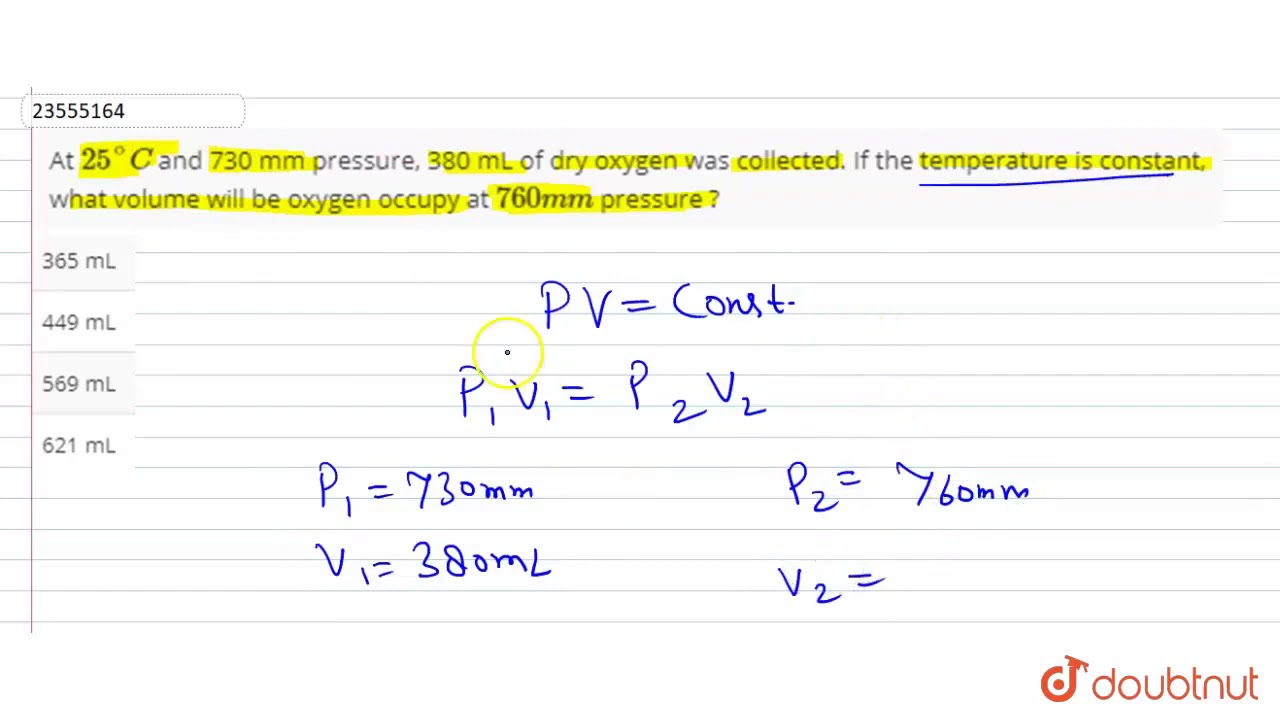 23555164
At 25°C and 730 mm pressure, 380 mL of dry oxygen was collected. If the temperature is constant,
what volume will be oxygen occupy at 760mm pressure ?
365 mL
449 mL
569 mL
621 mL
PV = Const.
P₁V₁ = P₂V₂
P₁ = 730mm
P₂ = 760mm
V₁ = 380mL
V₂ =
doubtnut